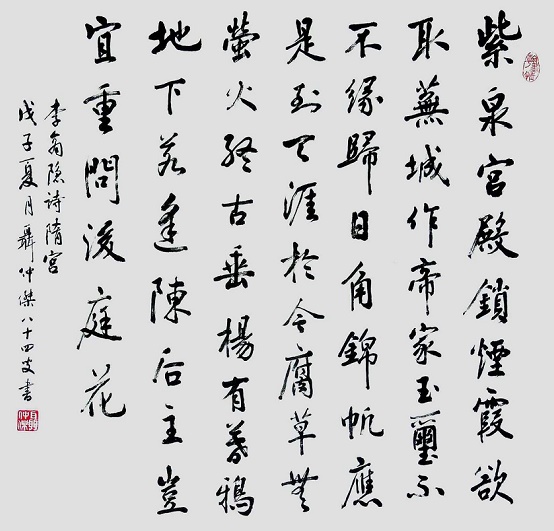 紫泉宮殿鎖煙霞欲
取蕪城作帝家玉璽不
不緣歸日角錦帆應
是到天涯於今腐草無
螢火終古垂楊有暮鴉
地下若逢陳后主豈
宜重問後庭花
李商隐诗隋宮
戊子夏月聶仲傑八十四叟書